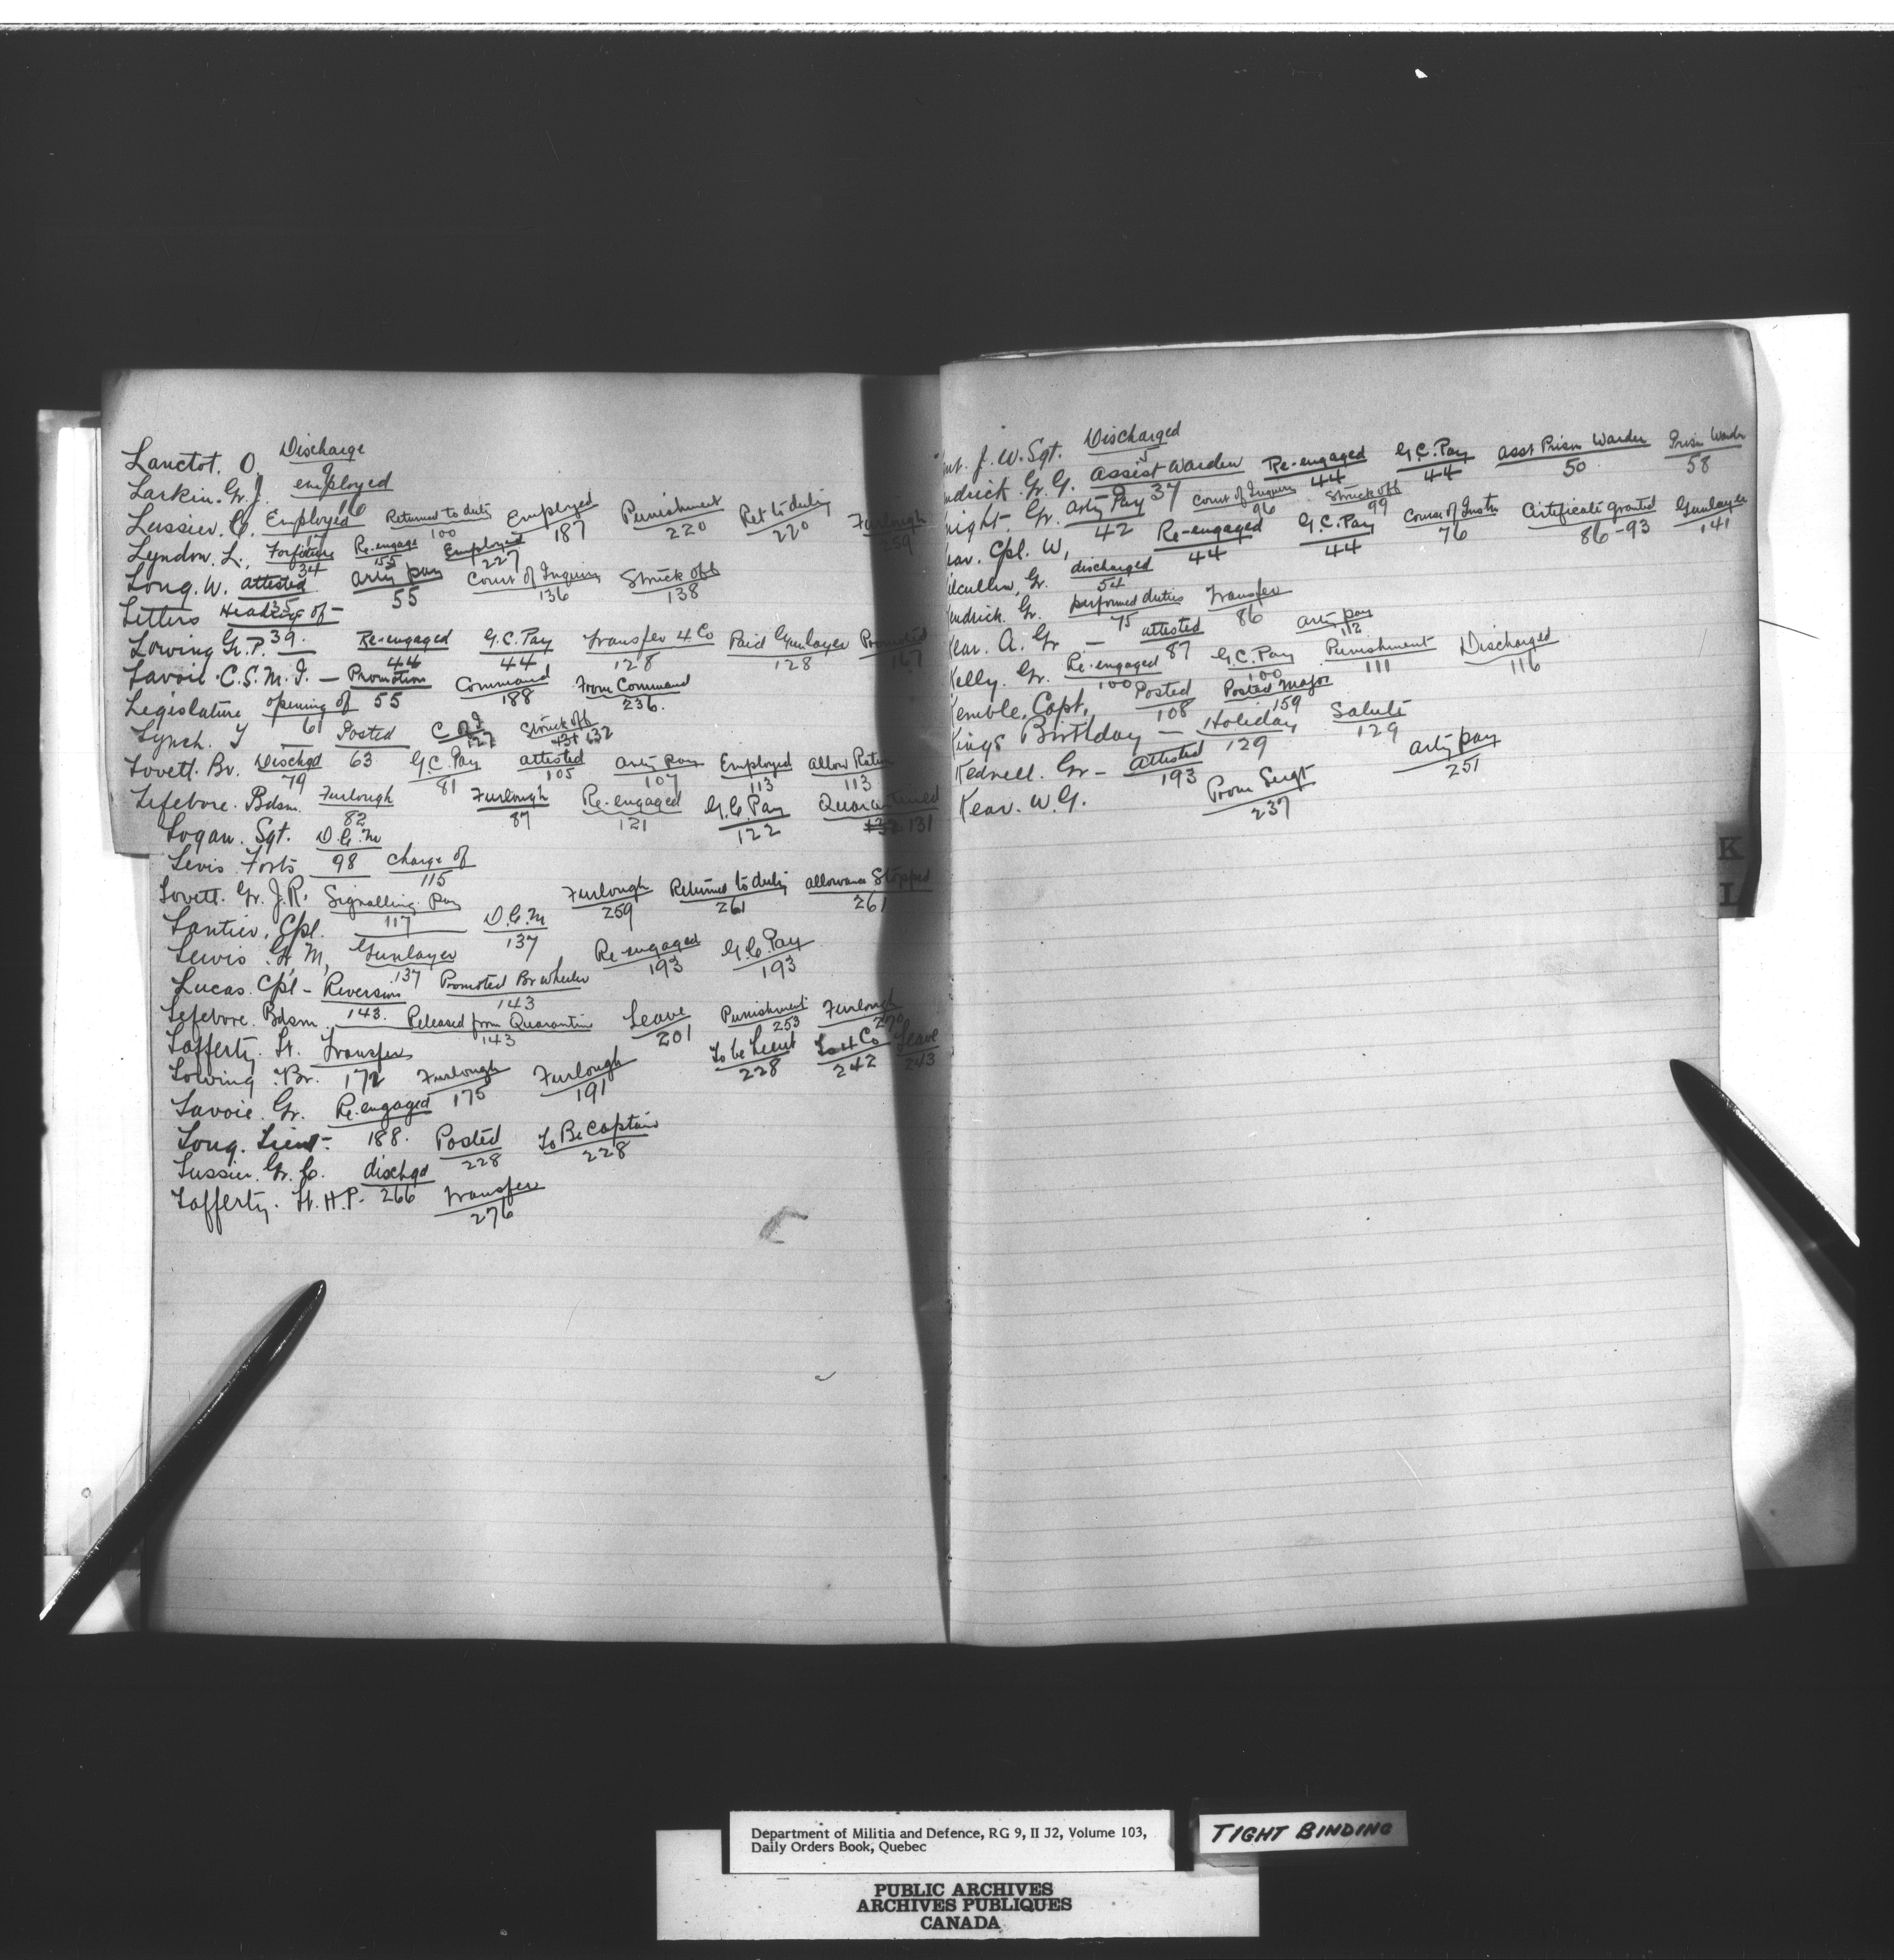 Lanctot. O. Discharge 9
Larkin. Gr. J. employed 16
Lussier. C. Employed 17 Returned to duty 100 Employed 187 Punishment 220 Ret to duty 220 Furlough 259
Lyndon. L. Forfeiture 34 Re-engage 155 Employed 227
Long. W. attested 35 arty pay 55 Court of Inquiry 136 Struck off 138
Letters Heading of - 39.
Lowing Gr. P. Re-engaged 44 G.C. Pay 44 Transfer 4 Co 128 Paid Gunlayer 128 Promoted 167
Lavoie. C.S.M. I. - Promotion 55 Command 188 From Command 236.
Legislature opening of 61
Lynch. J Posted 63 C of I 127 Struck off 132
Lovett. Br. Dischgd 79 G.C. Pay 81 attested 105 arty pay 107 Employed 113 allow Ration 113
Lefebvre. Bdsm. Furlough 82 Furlough 87 Re-engaged 121 G.C. Pay 122 Quarantined 131
Logan. Sgt. D.C.M 98
Levis Forts charge of 115
Lovett. Gr. J.R. Signalling Pay 117 Furlough 259 Returned to duty 261 allowance Stopped 261
Lantier, Cpl. D.C.M 137
Lewis. Gr. M, Gunlayer 137 Re-engaged 193 G.C. Pay 193
Lucas. Cpl - Reversion 143. Promoted Br Wheeler 143
Lefebvre. Bdsm. Released from Quarantine 143 Leave 201 Punishment 253 Furlough 270
Lafferty. Lt. Transfer 172 To be Lieut 228 To 4 Co 242 Leave 243
Lowing. Br. Furlough 175 Furlough 191
Lavoie. Gr. Re-engaged 188.
Long. Lieut - Posted 228 To Be Captain 228
Lussier. Gr. C. dischgd 266
Lafferty. Lt. H.P. Transfer 276
J. W. Sgt. Discharged
ndrick. Gr. G. Assist Warden 37 Re-engaged 44 G.C. Pay 44 asst Prison Warder 50 Prison Warder 58
night. Gr. Arty Pay 42 Court of Inquiry 96 Struck off 99
ear. Cpl. W, Re-engaged 44 G.C. Pay 44 Course of Instn 76 Certificate granted 86-93 Gunlayer 141
ilcullen, Gr. discharged 54
endrick. Gr. performed duties 75 Transfer 86
Kear. A. Gr - attested 87 arty pay 112
Kelly. Gr. Re-engaged 100 G.C. Pay 100 Punishment 111 Discharged 116
Kemble, Capt. Posted 108 Posted Major 159
Kings Birthday - Holiday 129 Salute 129
Kednell. Gr - Attested 193 arty pay 251
Kear. W.G. Prom Sergt 237
K
L
Department of Militia and Defence, RG 9, II J2, Volume 103,
Daily Orders Book, Quebec
TIGHT BINDING
PUBLIC ARCHIVES
ARCHIVES PUBLIQUES
CANADA